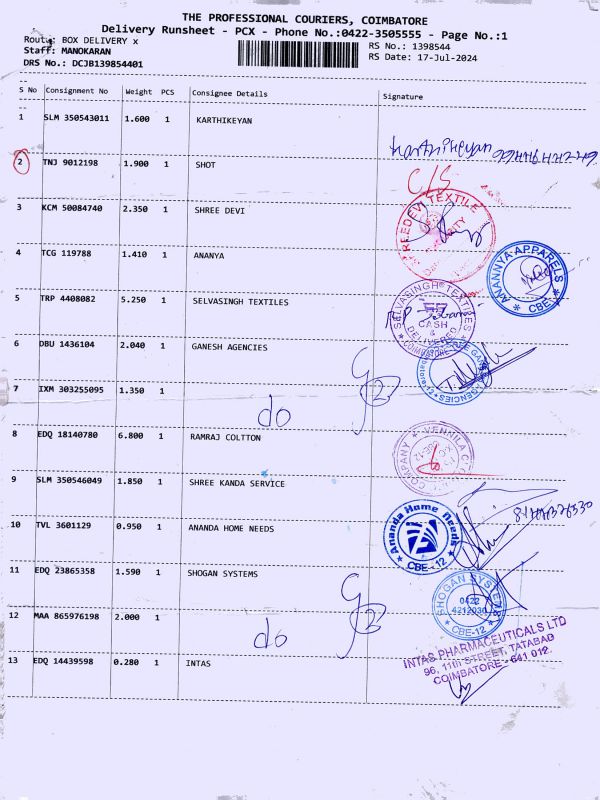 THE PROFESSIONAL COURIERS, COIMBATORE
Delivery Runsheet - PCX - Phone No.:0422-3505555 - Page No.:1
Route: BOX DELIVERY x
RS No.: 1398544
Staff: MANOKARAN
RS Date: 17-Jul-2024
DRS No.: DCJB139854401
S No Consignment No Weight PCS Consignee Details Signature
1 SLM 350543011 1.600 1 KARTHIKEYAN
Karthikeyan
2 TNJ 9012198 1.900 1 SHOT
C/S
3 KCM 50084740 2.350 1 SHREE DEVI
REEDEVI TEXTILE
4 TCG 119788 1.410 1 ANANYA
ANANNYA APPARELS
CBE
5 TRP 4408082 5.250 1 SELVASINGH TEXTILES
SELVASINGH TEXTILES
CASH
&
DELIVERED
COIMBATORE
6 DBU 1436104 2.040 1 GANESH AGENCIES
AGENCIES
7 IXM 303255095 1.350 1
do
8 EDQ 18140780 6.800 1 RAMRAJ COLTTON
VENNILA
COMPANY
9 SLM 350546049 1.850 1 SHREE KANDA SERVICE
10 TVL 3601129 0.950 1 ANANDA HOME NEEDS
Ananda Home Needs
CBE - 12
11 EDQ 23865358 1.590 1 SHOGAN SYSTEMS
SHOGAN SYSTEMS
0422
4212030
CBE-12
12 MAA 865976198 2.000 1
do
13 EDQ 14439598 0.280 1 INTAS
INTAS PHARMACEUTICALS LTD
96, 11th STREET, TATABAD
COIMBATORE - 641 012.